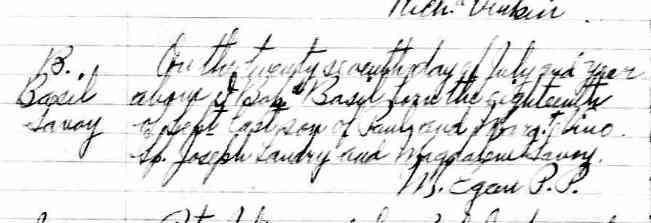 Richd
B. On the twenty seventh day of July and year
Basil above I Bapd Basil born the eighteenth
Savoy of Sept last son of Paul and Margt
Sp. Joseph Landry and Magdalene Savoy.
M. Egan P. P.